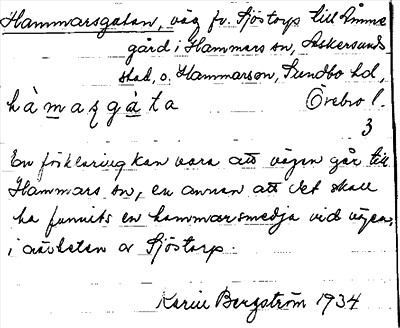 Hammarsgatan, väg fr. Sjöstorp till Åmme
gård i Hammars sn, Askersunds
stad, o. Hammarsn, Sundbo hd,
hàmaʂgáta Örebro l.
3
En förklaring kan vara att vägen går till
Hammars sn, en annan att det skall
ha funnits en hammarsmedja vid vägen,
i närheten av Sjöstorp.
Karin Bergström 1934